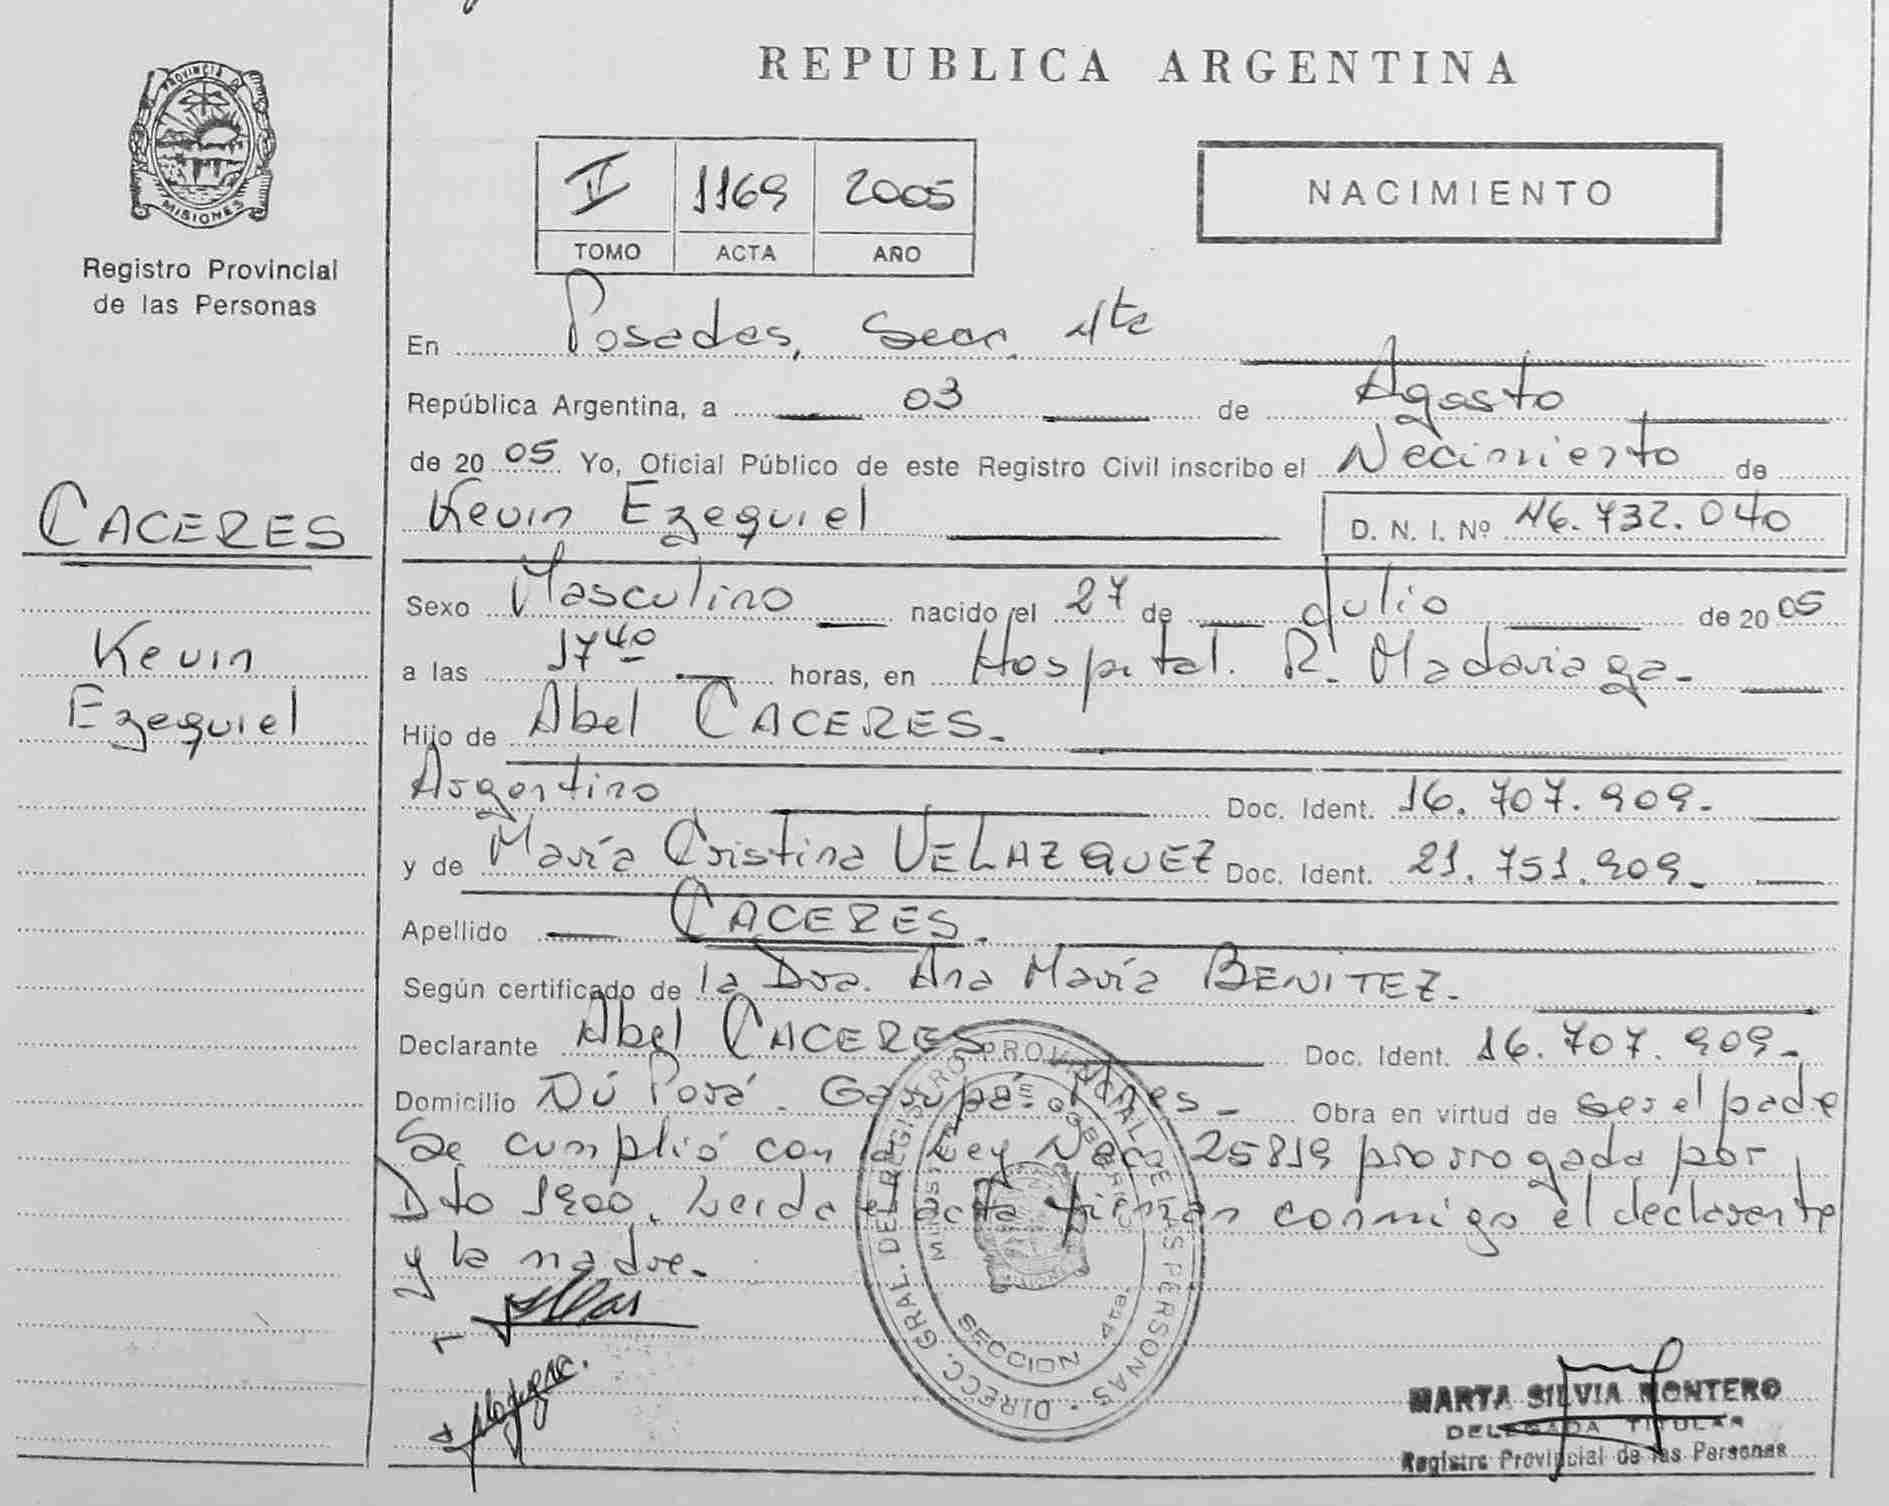 REPUBLICA ARGENTINA
PROVINCIA D
MISIONES
Registro Provincial
de las Personas
II 1169 2005
TOMO ACTA AÑO
NACIMIENTO
En Posadas, Secc. 4ta
República Argentina, a 03 de Agosto
de 2005 Yo, Oficial Público de este Registro Civil inscribo el Nacimiento de
CACERES
Kevin Ezequiel D. N. I. Nº 46.732.040
Sexo Masculino nacido el 27 de Julio de 2005
Kevin
a las 17 40 horas, en Hospital. R. Madariaga-
Ezequiel
Hijo de Abel CACERES-
Argentino Doc. Ident. 16.707.909-
y de María Cristina VELAZQUEZ Doc. Ident. 21.751.909-
Apellido CACERES-
Según certificado de la Dra. Ana María BENITEZ-
Declarante Abel CACERES Doc. Ident. 16.707.909-
Domicilio Ñú Porá. Garupá. Mnes- Obra en virtud de ser el padre
Se cumplió con la Ley Nac. 25819 prorrogada por
Dto 1900. Leida el acta firman conmigo el declarante
y la madre-
DIRECC. GRAL. DEL REGISTRO PROVINCIAL DE LAS PERSONAS
SECCION 4ta.
MARTA SILVIA MONTERO
DELEGADA TITULAR
Registro Provincial de las Personas